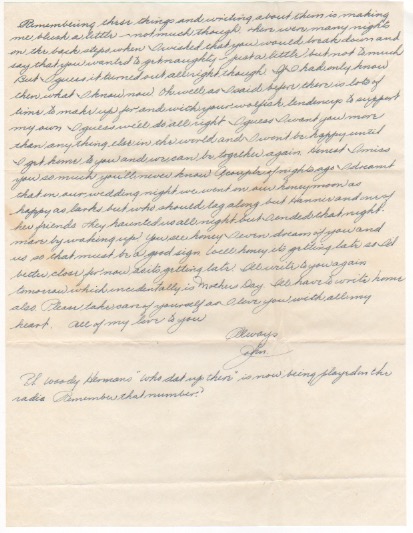 Remembering these things and writing about them is making
me blush a little - not much though. There were many nights
on the back steps when I wished that you would break down and
say that you wanted to get naughty. Just a little but not to much
But I guess it turned out all right though. If I had only knew
then what I know now. Oh well as I said before there is lots of
time to make up for and with your wolfish tendencys to support
my own I guess we'll do all right I guess I want you more
than any thing else in the world and I won't be happy until
I get home to you and we can be together again. Honest I miss
you so much you'll never know. Couple of nights ago I dreamt
that on our wedding night we went on our honeymoon as
happy as larks but who should tag along but and of
her friends. They haunted us all night but I ended that night
mare by waking up. You see honey I even dream of you and
us so that must be a good sign. Well honey its getting late so Id
better close for now as its getting late. Ill write to you again
tomorrow which incidentally is Mothers Day. Ill have to write home
also. Please take care of yourself as I love you with all my
heart. All of my love to you
Always
John.
Woody Hermans "Who dat up there" is now being played on the
radio. Remember that number?